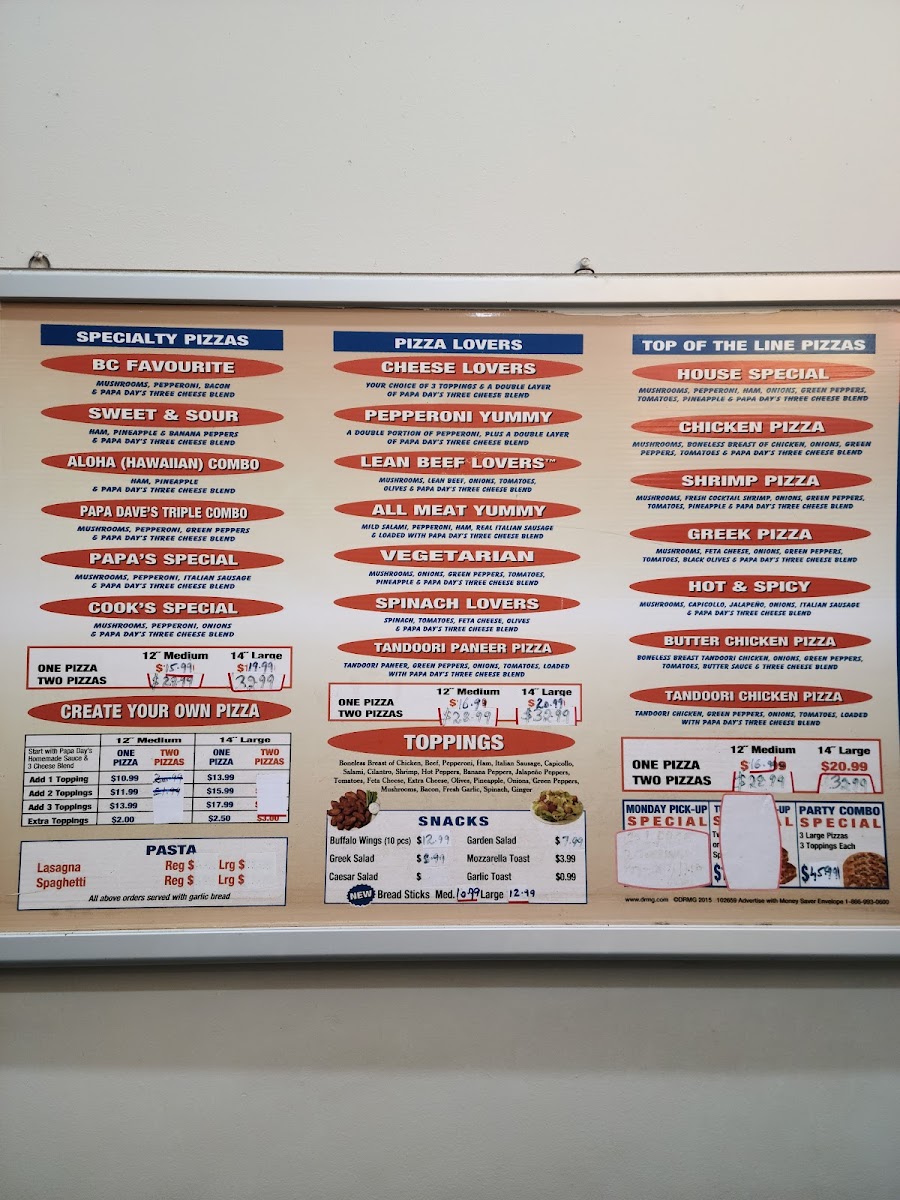 SPECIALTY PIZZAS
BC FAVOURITE
MUSHROOMS, PEPPERONI, BACON
& PAPA DAY'S THREE CHEESE BLEND
SWEET & SOUR
HAM, PINEAPPLE & BANANA PEPPERS
& PAPA DAY'S THREE CHEESE BLEND
ALOHA (HAWAIIAN) COMBO
HAM, PINEAPPLE
& PAPA DAY'S THREE CHEESE BLEND
PAPA DAVE'S TRIPLE COMBO
MUSHROOMS, PEPPERONI, GREEN PEPPERS
& PAPA DAY'S THREE CHEESE BLEND
PAPA'S SPECIAL
MUSHROOMS, PEPPERONI, ITALIAN SAUSAGE
& PAPA DAY'S THREE CHEESE BLEND
COOK'S SPECIAL
MUSHROOMS, PEPPERONI, ONIONS
& PAPA DAY'S THREE CHEESE BLEND
12" Medium 14" Large
ONE PIZZA $15.99 $19.99
TWO PIZZAS 32.99
CREATE YOUR OWN PIZZA
12" Medium 14" Large
Start with Papa Day's
Homemade Sauce &
3 Cheese Blend
ONE PIZZA TWO PIZZAS ONE PIZZA TWO PIZZAS
Add 1 Topping $10.99 $13.99
Add 2 Toppings $11.99 $15.99
Add 3 Toppings $13.99 $17.99
Extra Toppings $2.00 $2.50 $3.00
PASTA
Lasagna Reg $ Lrg $
Spaghetti Reg $ Lrg $
All above orders served with garlic bread
PIZZA LOVERS
CHEESE LOVERS
YOUR CHOICE OF 3 TOPPINGS & A DOUBLE LAYER
OF PAPA DAY'S THREE CHEESE BLEND
PEPPERONI YUMMY
A DOUBLE PORTION OF PEPPERONI, PLUS A DOUBLE LAYER
OF PAPA DAY'S THREE CHEESE BLEND
LEAN BEEF LOVERS™
MUSHROOMS, LEAN BEEF, ONIONS, TOMATOES,
OLIVES & PAPA DAY'S THREE CHEESE BLEND
ALL MEAT YUMMY
MILD SALAMI, PEPPERONI, HAM, REAL ITALIAN SAUSAGE
& LOADED WITH PAPA DAY'S THREE CHEESE BLEND
VEGETARIAN
MUSHROOMS, ONIONS, GREEN PEPPERS, TOMATOES,
PINEAPPLE & PAPA DAY'S THREE CHEESE BLEND
SPINACH LOVERS
SPINACH, TOMATOES, FETA CHEESE, OLIVES
& PAPA DAY'S THREE CHEESE BLEND
TANDOORI PANEER PIZZA
TANDOORI PANEER, GREEN PEPPERS, ONIONS, TOMATOES, LOADED
WITH PAPA DAY'S THREE CHEESE BLEND
12" Medium 14" Large
ONE PIZZA $16.99 $20.99
TWO PIZZAS $28.99 $32.99
TOPPINGS
Boneless Breast of Chicken, Beef, Pepperoni, Ham, Italian Sausage, Capicollo,
Salami, Cilantro, Shrimp, Hot Peppers, Banana Peppers, Jalapeño Peppers,
Tomatoes, Feta Cheese, Extra Cheese, Olives, Pineapple, Onions, Green Peppers,
Mushrooms, Bacon, Fresh Garlic, Spinach, Ginger
SNACKS
Buffalo Wings (10 pcs) $12.99 Garden Salad $7.99
Greek Salad $ Mozzarella Toast $3.99
Caesar Salad $ Garlic Toast $0.99
NEW Bread Sticks Med. 10.99 Large 12.99
TOP OF THE LINE PIZZAS
HOUSE SPECIAL
MUSHROOMS, PEPPERONI, HAM, ONIONS, GREEN PEPPERS,
TOMATOES, PINEAPPLE & PAPA DAY'S THREE CHEESE BLEND
CHICKEN PIZZA
MUSHROOMS, BONELESS BREAST OF CHICKEN, ONIONS, GREEN
PEPPERS, TOMATOES & PAPA DAY'S THREE CHEESE BLEND
SHRIMP PIZZA
MUSHROOMS, FRESH COCKTAIL SHRIMP, ONIONS, GREEN PEPPERS,
TOMATOES, PINEAPPLE & PAPA DAY'S THREE CHEESE BLEND
GREEK PIZZA
MUSHROOMS, FETA CHEESE, ONIONS, GREEN PEPPERS,
TOMATOES, BLACK OLIVES & PAPA DAY'S THREE CHEESE BLEND
HOT & SPICY
MUSHROOMS, CAPICOLLO, JALAPEÑO, ONIONS, ITALIAN SAUSAGE
& PAPA DAY'S THREE CHEESE BLEND
BUTTER CHICKEN PIZZA
BONELESS BREAST TANDOORI CHICKEN, ONIONS, GREEN PEPPERS,
TOMATOES, BUTTER SAUCE & THREE CHEESE BLEND
TANDOORI CHICKEN PIZZA
TANDOORI CHICKEN, GREEN PEPPERS, ONIONS, TOMATOES, LOADED
WITH PAPA DAY'S THREE CHEESE BLEND
12" Medium 14" Large
ONE PIZZA $16.99 $20.99
TWO PIZZAS $28.99 32.99
MONDAY PICK-UP
SPECIAL
UP
PARTY COMBO
SPECIAL
3 Large Pizzas
3 Toppings Each
$45.99
www.drmg.com ©DRMG 2015 102659 Advertise with Money Saver Envelope 1-866-993-0600